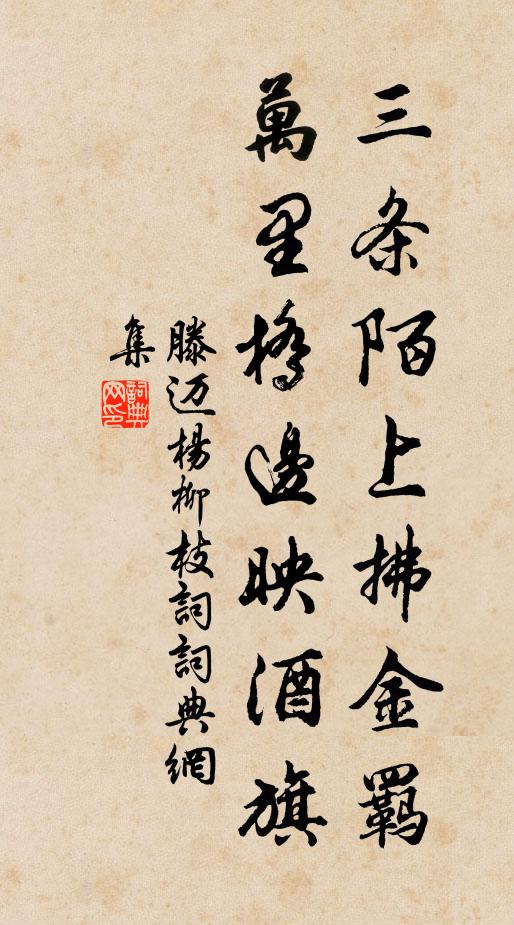 三条陌上拂金羈
萬里橋邊映酒旗
滕迈楊柳枝詞詞典網
集
詞典網印